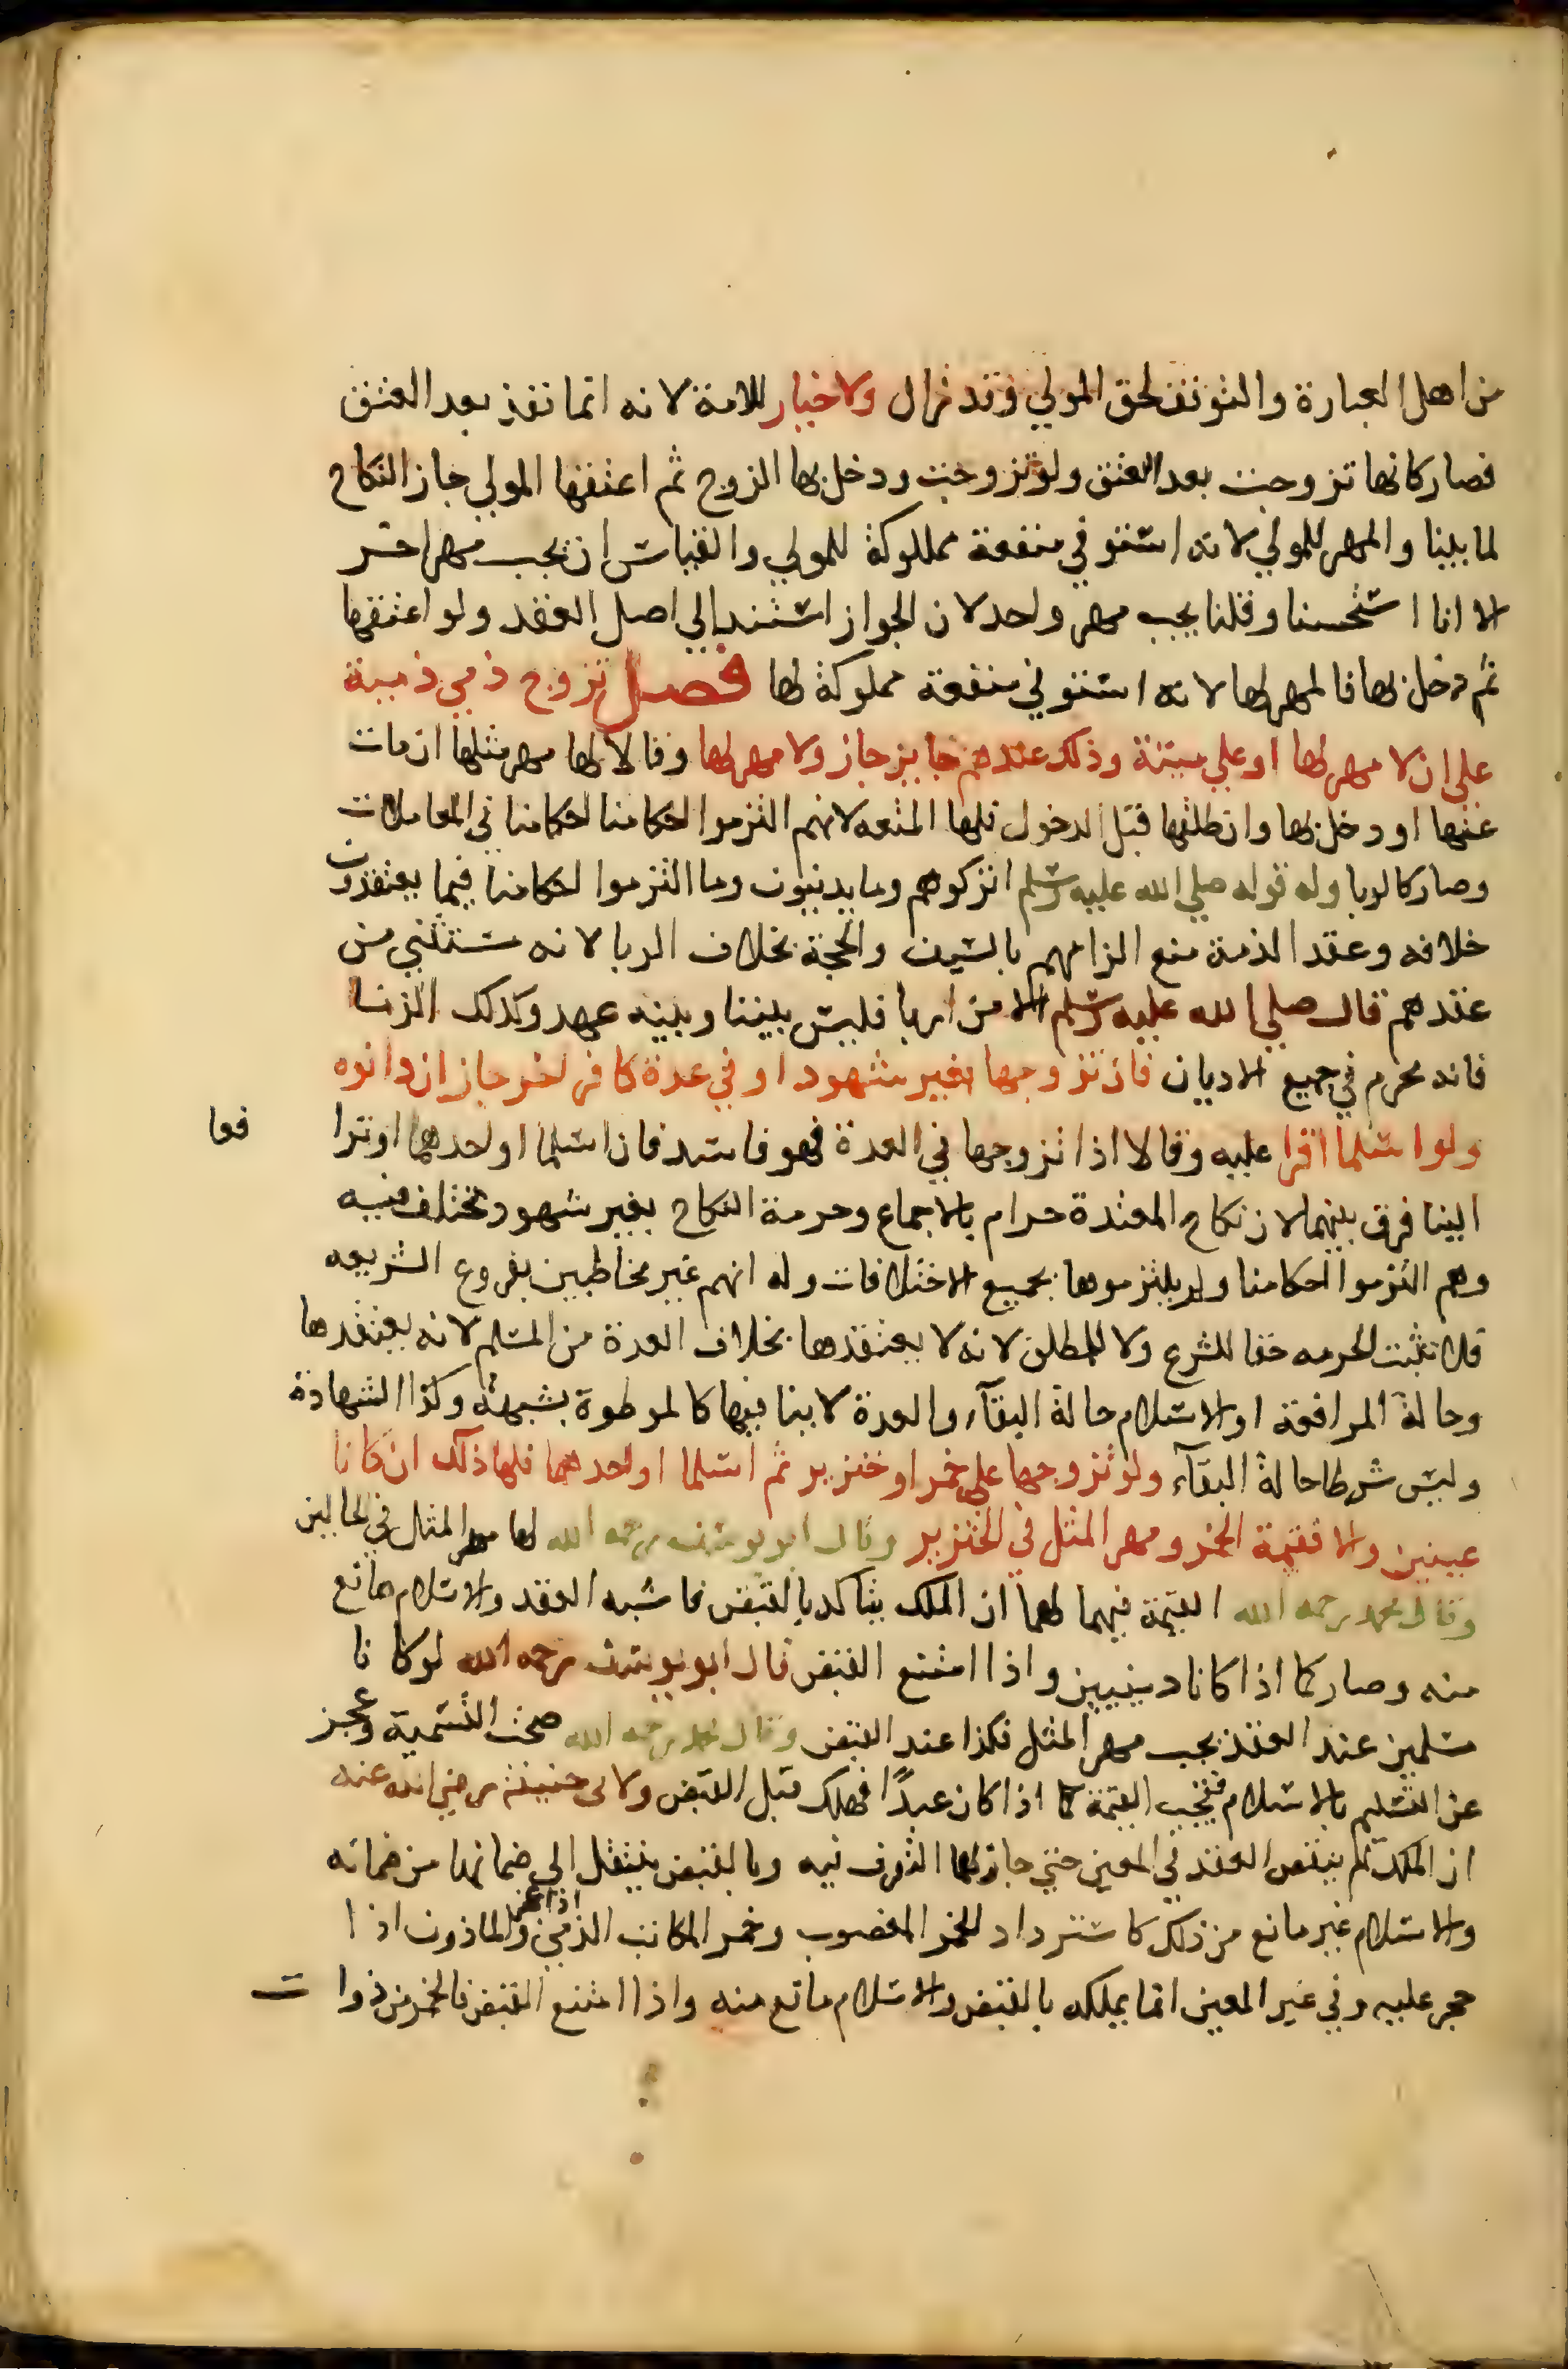 من اهل العبارة والتوقف لحق المولي وقد زال ولا خيار للامة لانه انما نفذ بعد العتق
فصار كانها تزوجت بعد العتق ولو تزوجت ودخل بها الزوج ثم اعتقها المولي جاز النكاح
لما بينا والمهر للمولي لانه استوفي منفعة مملوكة للمولي والقياس ان يجب مهر اخر
الا انا استحسنا وقلنا يجب مهر واحد لان الجواز استند الي اصل العقد ولو اعتقها
ثم دخل بها فالمهر لها لانه استوفي منفعة مملوكة لها فصل تزوج ذمي ذمية
علي ان لا مهر لها او علي ميتة وذلك عندهم جايز جاز ولا مهر لها وقالا لها مهر مثلها ان مات
عنها او دخل بها وان طلقها قبل الدخول فلها المتعه لانهم التزموا احكامنا احكامنا في المعاملات
وصار كالربا وله قوله صلي الله عليه وسلم اتركوهم وما يدينون وما التزموا احكامنا فيما يعتقدون
خلافه وعقد الذمة منع الزامهم بالسيف والحجة بخلاف الربا لانه مستثني من
عقدهم قال صلي الله عليه وسلم الا من اربا فليس بيننا وبينه عهد وكذلك الزنا
فانه محرم في جميع الاديان فان تزوجها بغير شهود او في عدة كافر اخر جاز ان دانوه
ولو اسلما اقرا عليه وقالا اذا تزوجها في العدة فهو فاسد فان اسلما او احدهما او ترا فعا
الينا فرق بينهما لان نكاح المعتدة حرام بالاجماع وحرمة النكاح بغير شهود مختلف فيه
وهم التزموا احكامنا ولم يلتزموها بجميع الاختلافات وله انهم غير مخاطبين بفروع الشريعه
فلا تثبت الحرمه حقا للشرع ولا للمطلق لانه لا يعتقدها بخلاف العدة من المسلم لانه يعتقدها
وحالة المرافعة او الاسلام حالة البقآء والعدة لا ينافيها كالموطوة بشبهة وكذا الشهادة
وليس شرطا حالة البقآء ولو تزوجها علي خمر او خنزير ثم اسلما او احدهما فلها ذلك ان كانا
عينين والا فقيمة الخمر ومهر المثل في الخنزير وقال ابو يوسف رحمه الله لها مهر المثل في الحالين
وقال محمد رحمه الله القيمة فيهما لهما ان الملك يتاكد بالقبض فاشبه العقد والاسلام مانع
منه وصار كما اذا كانا دينيين واذا امتنع القبض قال ابو يوسف رحمه الله لو كانا
مسلمين عند العقد يجب مهر المثل فكذا عند القبض وقال محمد رحمه الله صحت التسمية وعجز
عن التسليم بالاسلام فيجب القيمة كما اذا كان عبدًا فهلك قبل القبض ولابي حنيفة رضي الله عنه
ان الملك تم بنفس العقد في المعين حتي جاز لها التصرف فيه وبالقبض ينتقل الي ضمانها من ضمانه
والاسلام غير مانع من ذلك كاسترداد الخمر المغصوب وخمر المكاتب الذمي اذا عجز والماذون اذا
حجر عليه وفي غير المعين انما يملكه بالقبض والاسلام مانع منه واذا امتنع القبض فالخمر من ذوات